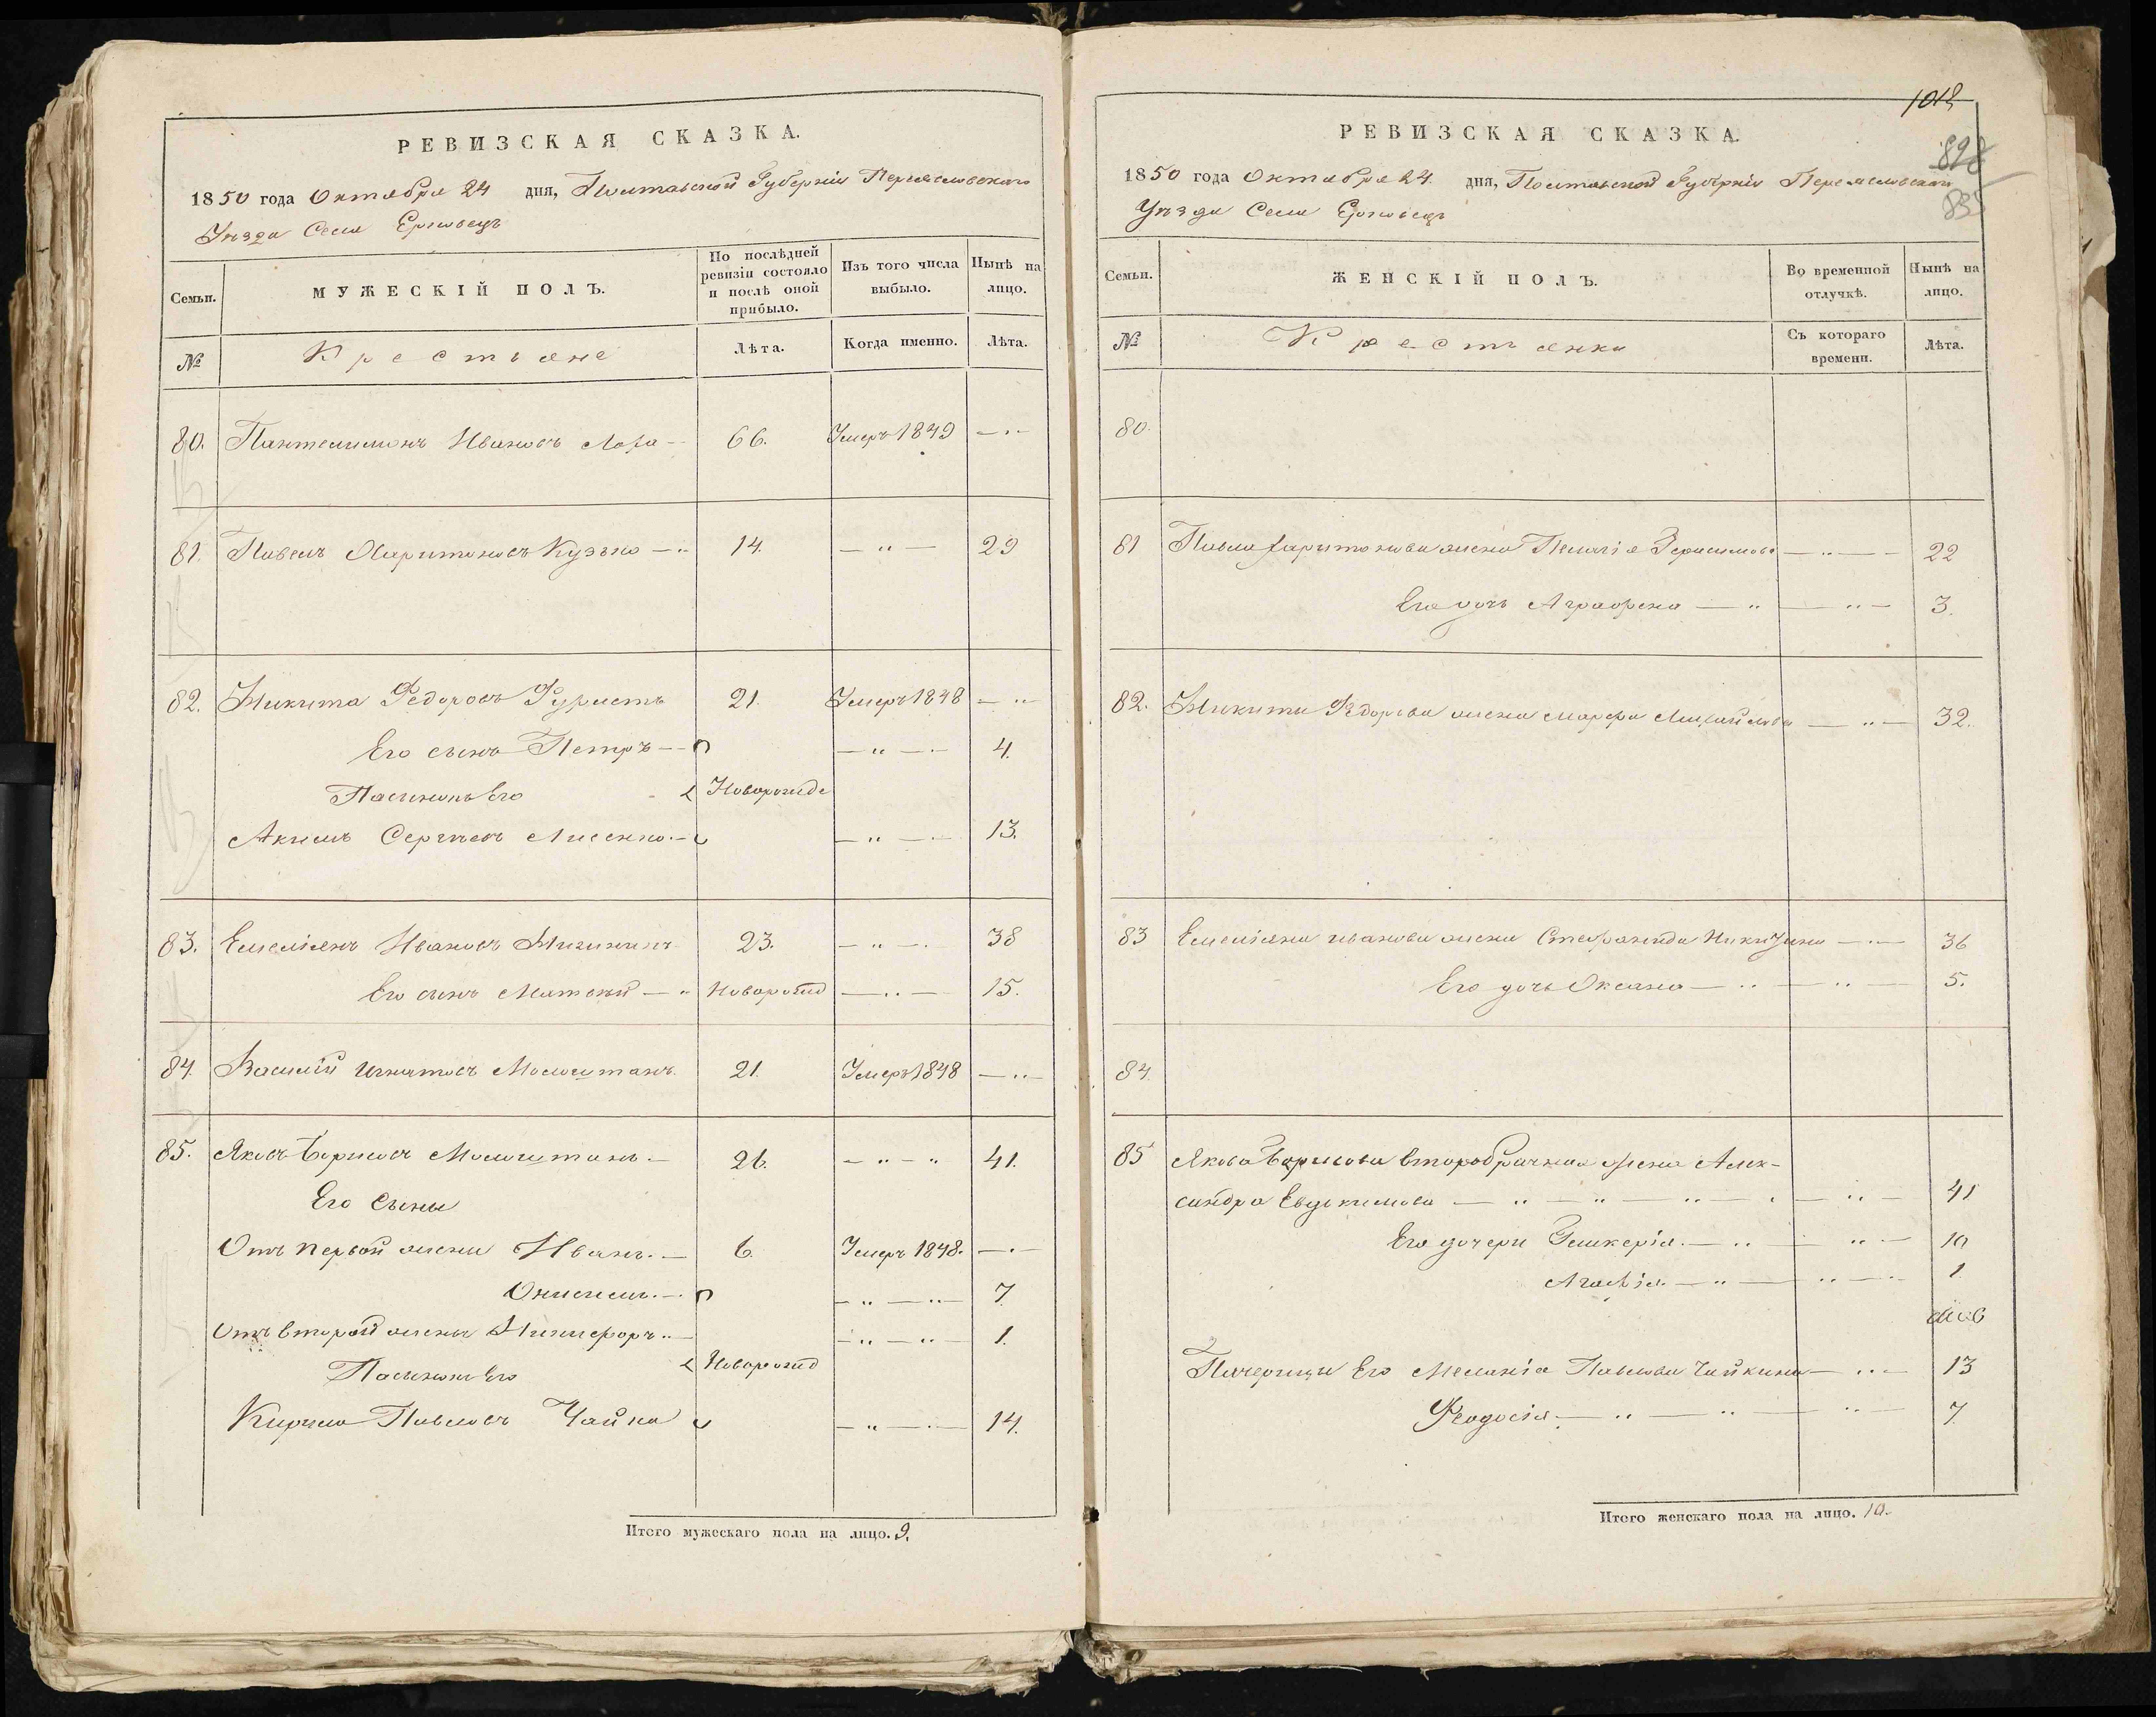 РЕВИЗСКАЯ СКАЗКА.
1850 года Октября 24 дня, Полтавской Губерніи Переяславскаго
Уѣзда Села Ерковецъ
Семьи.
МУЖЕСКІЙ ПОЛЪ.
По послѣдней ревизіи состояло и послѣ оной прибыло.
Изъ того числа выбыло.
Нынѣ на лицо.
№
Крестьяне
Лѣта.
Когда именно.
Лѣта.
80. Пантелимонъ Ивановъ 66. Умеръ 1849 — " —
81. Павелъ Харитоновъ Кузько — " 14. — " — 29
82. Никита Федоровъ 21. Умеръ 1848 — "
Его сынъ Петръ — — " — 4.
Пасынокъ Его Новорожде
Акимъ Сергѣевъ Лисенко. — — " — 13.
83. Емеліянъ Ивановъ 23. — " — 38
Его сынъ Матвѣй — " Новорожд — " — 15.
84. Василій Игнатовъ 21. Умеръ 1848 — " —
85. Яковъ Борисовъ 26. — " — " 41.
Его Сыны
Отъ первой жены Иванъ. — 6. Умеръ 1848. — " —
Онисимъ. — — " — " — 7.
Отъ второй жены Никифоръ " — — " — " 1.
Пасынокъ Его Новорожд
Кирило Павловъ Чайка — " — 14.
Итого мужескаго пола на лицо. 9.
1012
898
РЕВИЗСКАЯ СКАЗКА.
1850 года Октября 24. дня, Полтавской Губерніи Переяславскаго
Уѣзда Села Ерковецъ
Семьи.
ЖЕНСКІЙ ПОЛЪ.
Во временной отлучкѣ.
Нынѣ на лицо.
№
Крестьянки
Съ котораго времени.
Лѣта.
80.
81 Павла Харитонова жена Пелагія Герасимова — " — 22
Его дочь Аграфена — " — " — 3.
82. Никиты Федорова жена Марфа Михайлова — " — 32.
83 Емеліяна Иванова жена Стефанида Никитина — " — 36
Его дочь Оксана — " — " — 5.
84.
85 Якова Борисова второбрачная жена Алек-
сандра Евдокимова — " — " — " — " — 41
Его дочери Гликерія. — " — " — 10
Агафія. — " — " — 1
мѣс
Пачерицы Его Меланія Павлова Чайкина — " — 13
Феодосія — " — " — " — 7.
Итого женскаго пола на лицо. 10.